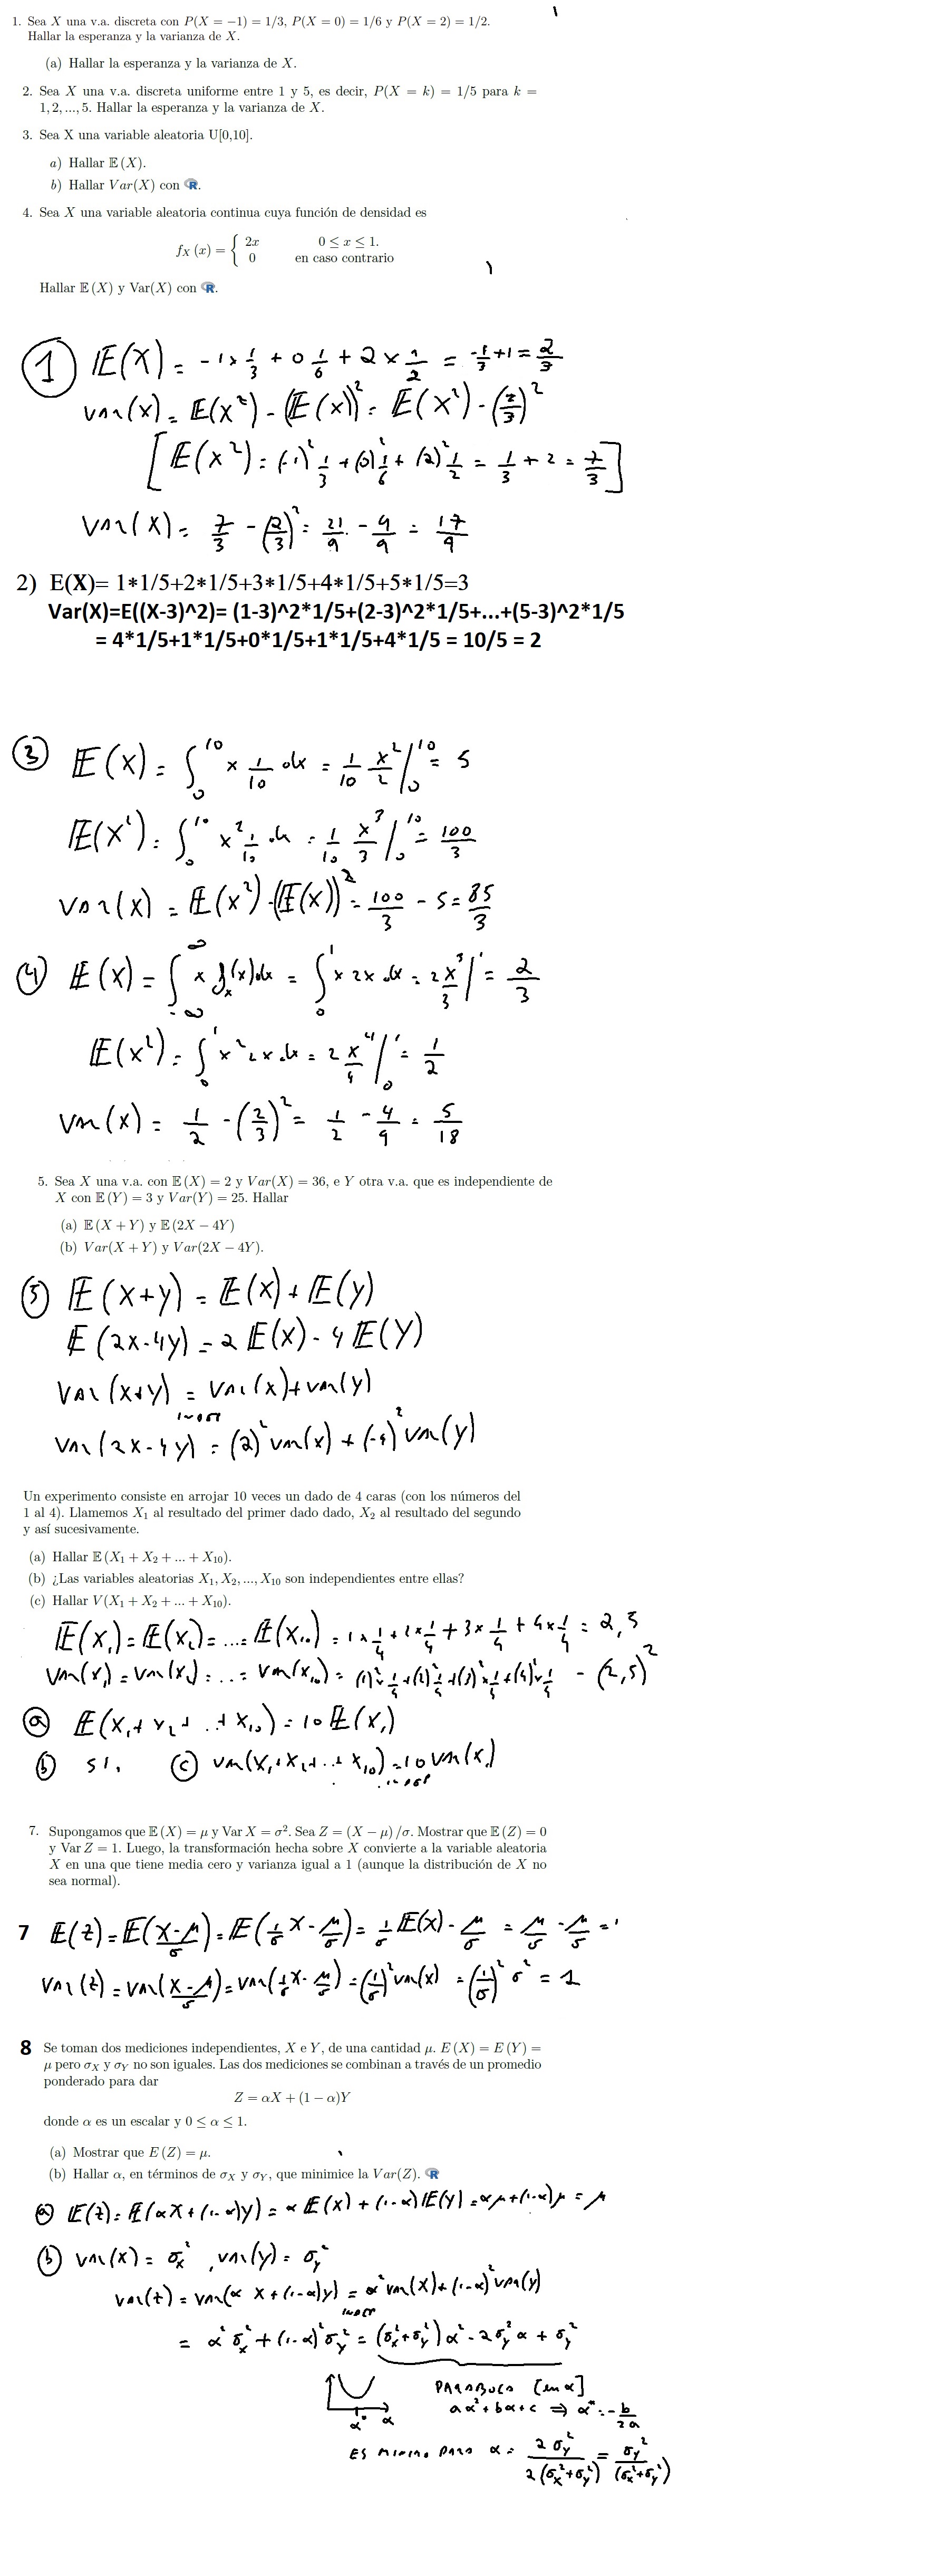 1. Sea X una v.a. discreta con P(X = −1) = 1/3, P(X = 0) = 1/6 y P(X = 2) = 1/2.
Hallar la esperanza y la varianza de X.
(a) Hallar la esperanza y la varianza de X.
2. Sea X una v.a. discreta uniforme entre 1 y 5, es decir, P(X = k) = 1/5 para k =
1, 2, ..., 5. Hallar la esperanza y la varianza de X.
3. Sea X una variable aleatoria U[0,10].
a) Hallar 𝔼(X).
b) Hallar Var(X) con R.
4. Sea X una variable aleatoria continua cuya función de densidad es
f_X(x) = { 2x 0 ≤ x ≤ 1.
0 en caso contrario
Hallar 𝔼(X) y Var(X) con R.
① 𝔼(X) = -1 × 1/3 + 0 1/6 + 2 × 1/2 = -1/3 + 1 = 2/3
Var(X) = 𝔼(X²) - (𝔼(X))² = 𝔼(X²) - (2/3)²
[𝔼(X²) = (-1)² 1/3 + (0)² 1/6 + (2)² 1/2 = 1/3 + 2 = 7/3]
Var(X) = 7/3 - (2/3)² = 21/9 - 4/9 = 17/9
2) E(X)= 1*1/5+2*1/5+3*1/5+4*1/5+5*1/5=3
Var(X)=E((X-3)^2)= (1-3)^2*1/5+(2-3)^2*1/5+...+(5-3)^2*1/5
= 4*1/5+1*1/5+0*1/5+1*1/5+4*1/5 = 10/5 = 2
③ 𝔼(X) = ∫₀¹⁰ x 1/10 dx = 1/10 x²/2 |₀¹⁰ = 5
𝔼(X²) = ∫₀¹⁰ x² 1/10 dx = 1/10 x³/3 |₀¹⁰ = 100/3
Var(X) = 𝔼(X²) - (𝔼(X))² = 100/3 - 5 = 85/3
④ 𝔼(X) = ∫_{-∞}^{∞} x f_X(x) dx = ∫₀¹ x 2x dx = 2 x³/3 |¹ = 2/3
𝔼(X²) = ∫₀¹ x² 2x dx = 2 x⁴/4 |₀¹ = 1/2
Var(X) = 1/2 - (2/3)² = 1/2 - 4/9 = 5/18
5. Sea X una v.a. con 𝔼(X) = 2 y Var(X) = 36, e Y otra v.a. que es independiente de
X con 𝔼(Y) = 3 y Var(Y) = 25. Hallar
(a) 𝔼(X + Y) y 𝔼(2X − 4Y)
(b) Var(X + Y) y Var(2X − 4Y).
⑤ 𝔼(X+Y) = 𝔼(X) + 𝔼(Y)
𝔼(2X-4Y) = 2𝔼(X) - 4𝔼(Y)
Var(X+Y) = Var(X) + Var(Y)
indep
Var(2X-4Y) = (2)² Var(X) + (-4)² Var(Y)
Un experimento consiste en arrojar 10 veces un dado de 4 caras (con los números del
1 al 4). Llamemos X₁ al resultado del primer dado dado, X₂ al resultado del segundo
y así sucesivamente.
(a) Hallar 𝔼(X₁ + X₂ + ... + X₁₀).
(b) ¿Las variables aleatorias X₁, X₂, ..., X₁₀ son independientes entre ellas?
(c) Hallar V(X₁ + X₂ + ... + X₁₀).
𝔼(X₁) = 𝔼(X₂) = ... = 𝔼(X₁₀) = 1 × 1/4 + 2 × 1/4 + 3 × 1/4 + 4 × 1/4 = 2,5
Var(X₁) = Var(X₂) = ... = Var(X₁₀) = (1)² × 1/4 + (2)² 1/4 + (3)² × 1/4 + (4)² × 1/4 - (2,5)²
ⓐ 𝔼(X₁ + X₂ + ... + X₁₀) = 10 𝔼(X₁)
ⓑ SI. ⓒ Var(X₁ + X₂ + ... + X₁₀) = 10 Var(X₁)
indep
7. Supongamos que 𝔼(X) = μ y Var X = σ². Sea Z = (X − μ)/σ. Mostrar que 𝔼(Z) = 0
y Var Z = 1. Luego, la transformación hecha sobre X convierte a la variable aleatoria
X en una que tiene media cero y varianza igual a 1 (aunque la distribución de X no
sea normal).
7 𝔼(Z) = 𝔼((X-μ)/σ) = 𝔼(1/σ X - μ/σ) = 1/σ 𝔼(X) - μ/σ = μ/σ - μ/σ =
Var(Z) = Var((X-μ)/σ) = Var(1/σ X - μ/σ) = (1/σ)² Var(X) = (1/σ)² σ² = 1
8 Se toman dos mediciones independientes, X e Y, de una cantidad μ. E(X) = E(Y) =
μ pero σ_X y σ_Y no son iguales. Las dos mediciones se combinan a través de un promedio
ponderado para dar
Z = αX + (1 − α)Y
donde α es un escalar y 0 ≤ α ≤ 1.
(a) Mostrar que E(Z) = μ.
(b) Hallar α, en términos de σ_X y σ_Y, que minimice la Var(Z). R
ⓐ 𝔼(Z) = 𝔼(αX + (1-α)Y) = α 𝔼(X) + (1-α) 𝔼(Y) = αμ + (1-α)μ = μ
ⓑ Var(X) = σ_X², Var(Y) = σ_Y²
Var(Z) = Var(αX + (1-α)Y) = α² Var(X) + (1-α)² Var(Y)
indep
= α² σ_X² + (1-α)² σ_Y² = (σ_X² + σ_Y²) α² - 2σ_Y² α + σ_Y²
PARABOLA [en α]
aα² + bα + c ⇒ α* = -b/2a
α* α
ES MINIMO PARA α = 2σ_Y² / 2(σ_X² + σ_Y²) = σ_Y² / (σ_X² + σ_Y²)